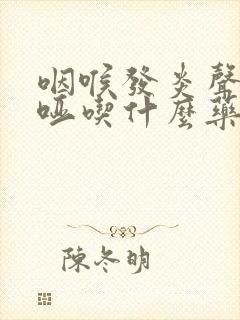 咽喉發炎聲
啞喫什麼藥
陳冬明